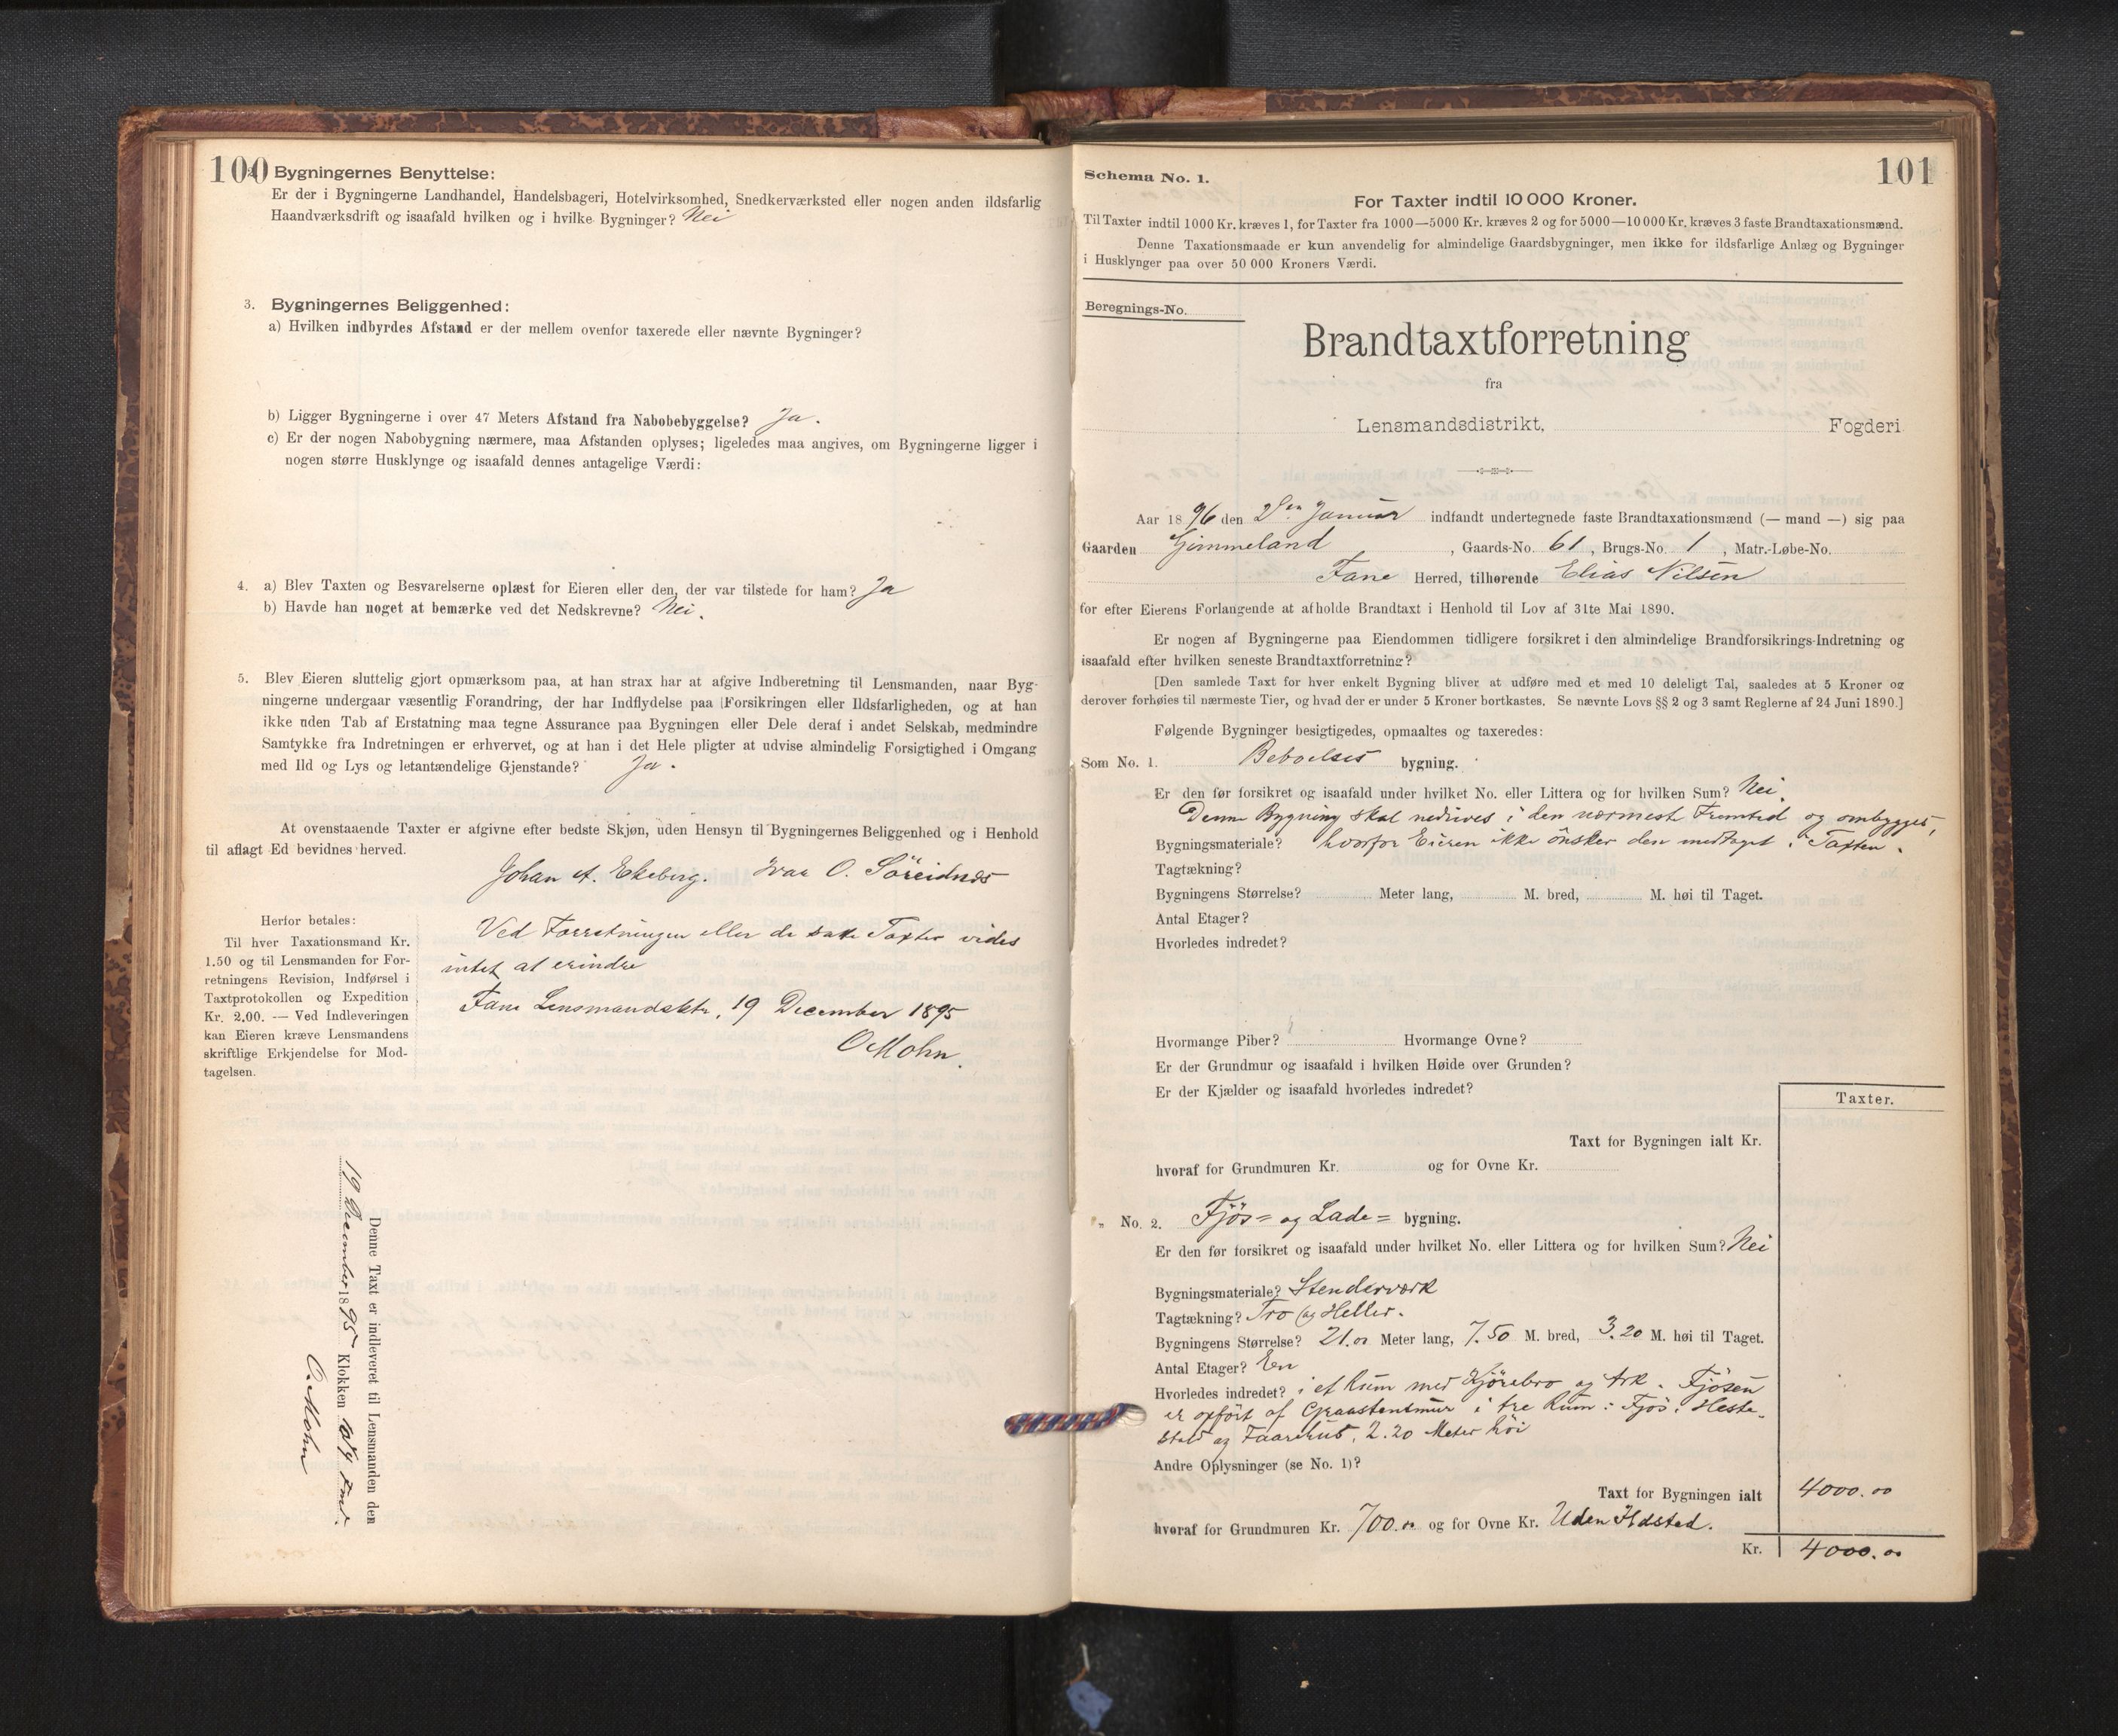 100
2. Bygningernes Benyttelse:
Er der i Bygningerne Landhandel, Handelsbageri, Hotelvirksomhed, Snedkerværksted eller nogen anden ildsfarlig
Haandværksdrift og isaafald hvilken og i hvilke Bygninger? Nei
3. Bygningernes Beliggenhed:
a) Hvilken indbyrdes Afstand er der mellem ovenfor taxerede eller nævnte Bygninger?
b) Ligger Bygningerne i over 47 Meters Afstand fra Nabobebyggelse? Ja.
c) Er der nogen Nabobygning nærmere, maa Afstanden oplyses; ligeledes maa angives, om Bygningerne ligger i
nogen større Husklynge og isaafald dennes antagelige Værdi:
4. a) Blev Taxten og Besvarelserne oplæst for Eieren eller den, der var tilstede for ham? Ja
b) Havde han noget at bemærke ved det Nedskrevne? Nei.
5. Blev Eieren sluttelig gjort opmærksom paa, at han strax har at afgive Indberetning til Lensmanden, naar Byg-
ningerne undergaar væsentlig Forandring, der har Indflydelse paa Forsikringen eller Ildsfarligheden, og at han
ikke uden Tab af Erstatning maa tegne Assurance paa Bygningen eller Dele deraf i andet Selskab, medmindre
Samtykke fra Indretningen er erhvervet, og at han i det Hele pligter at udvise almindelig Forsigtighed i Omgang
med Ild og Lys og letantændelige Gjenstande? Ja.
At ovenstaaende Taxter er afgivne efter bedste Skjøn, uden Hensyn til Bygningernes Beliggenhed og i Henhold
til aflagt Ed bevidnes herved.
Johan A. Ekeberg. Ivar O. Söreidnes
Herfor betales:
Til hver Taxationsmand Kr.
1.50 og til Lensmanden for For-
retningens Revision, Indførsel i
Taxtprotokollen og Expedition
Kr. 2,00. — Ved Indleveringen
kan Eieren kræve Lensmandens
skriftlige Erkjendelse for Mod-
tagelsen.
Ved Forretningen eller de satte Taxter vides
intet at erindre
Fane Lensmandsktr, 19 December 1895
O Mohn.
Denne Taxt er indleveret til Lensmanden den
19 December 1895 Klokken 10¼ Fmd.
O. Mohn
101
Schema No. 1.
For Taxter indtil 10 000 Kroner.
Til Taxter indtil 1000 Kr. kræves 1, for Taxter fra 1000—5000 Kr. kræves 2 og for 5000—10 000 Kr. kræves 3 faste Brandtaxationsmænd.
Denne Taxationsmaade er kun anvendelig for almindelige Gaardsbygninger, men ikke for ildsfarlige Anlæg og Bygninger
i Husklynger paa over 50 000 Kroners Værdi.
Beregnings-No.
Brandtaxtforretning
fra
Lensmandsdistrikt, Fogderi
Aar 1896 den 2den Januar indfandt undertegnede faste Brandtaxationsmænd (— mand —) sig paa
Gaarden Gimmeland, Gaards-No. 61, Brugs-No. 1, Matr.-Løbe-No.
Fane Herred, tilhørende Elias Nilsen
for efter Eierens Forlangende at afholde Brandtaxt i Henhold til Lov af 31te Mai 1890.
Er nogen af Bygningerne paa Eiendommen tidligere forsikret i den almindelige Brandforsikrings-Indretning og
isaafald efter hvilken seneste Brandtaxtforretning?
[Den samlede Taxt for hver enkelt Bygning bliver at udføre med et med 10 deleligt Tal, saaledes at 5 Kroner og
derover forhøies til nærmeste Tier, og hvad der er under 5 Kroner bortkastes. Se nævnte Lovs §§ 2 og 3 samt Reglerne af 24 Juni 1890.]
Følgende Bygninger besigtigedes, opmaaltes og taxeredes:
Som No. 1. Beboelses bygning.
Er den før forsikret og isaafald under hvilket No. eller Littera og for hvilken Sum? Nei.
Denne Bygning skal nedrives i den nærmeste Fremtid og ombygges,
Bygningsmateriale? hvorfor Eieren ikke önsker den medtaget i Taxten.
Tagtækning?
Bygningens Størrelse? Meter lang, M. bred, M. høi til Taget.
Antal Etager?
Hvorledes indredet?
Hvormange Piber? Hvormange Ovne?
Er der Grundmur og isaafald i hvilken Høide over Grunden?
Er der Kjælder og isaafald hvorledes indredet?
Taxter.
Taxt for Bygningen ialt Kr.
hvoraf for Grundmuren Kr. og for Ovne Kr.
" No. 2. Fjös= og Lade= bygning.
Er den før forsikret og isaafald under hvilket No. eller Littera og for hvilken Sum? Nei
Bygningsmateriale? Stenderverk
Tagtækning? Tro og Heller.
Bygningens Størrelse? 21.00 Meter lang, 7.50 M. bred, 3.20 M. høi til Taget.
Antal Etager? En
Hvorledes indredet? i et Rum med Kjörebro og Ark. Fjösen
er opfört af Graastensmur i tre Rum: Fjös, Heste-
stald og Faarehus, 2.20 Meter höi
Andre Oplysninger (se No. 1)?
Taxt for Bygningen ialt 4000.00
hvoraf for Grundmuren Kr. 700.00 og for Ovne Kr. Uden Ildsted.
Kr. 4000.00